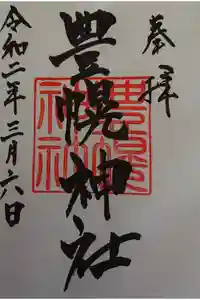 奉拝
豊幌神社
令和二年三月六日
豊幌神社